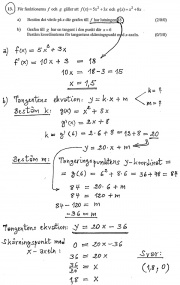 13. För funktionerna f och g gäller att f(x) = 5x² + 3x och g(x) = x² + 8x
a) Bestäm det värde på x där grafen till f har lutningen 18 (2/0/0)
b) Grafen till g har en tangent i den punkt där x = 6
Bestäm koordinaterna för tangentens skärningspunkt med x-axeln. (0/2/0)
a) f(x) = 5x² + 3x
f'(x) = 10x + 3 = 18
10x = 18-3 = 15
x = 1,5
b) Tangentens ekvation: y = k·x + m
k = ?
m = ?
Bestäm k: g(x) = x² + 8x
g'(x) = 2x + 8
k = g'(6) = 2·6 + 8 = 12 + 8 = 20
y = 20·x + m
Bestäm m: Tangeringspunktens y-koordinat =
= g(6) = 6² + 8·6 = 36 + 48 = 84
84 = 20·6 + m
84 = 120 + m
84 - 120 = m
-36 = m
Tangentens ekvation: y = 20x - 36
Skärningspunkt med x-axeln: 0 = 20x - 36
36 = 20x
36/20 = x
1,8 = x
Svar: (1,8, 0)